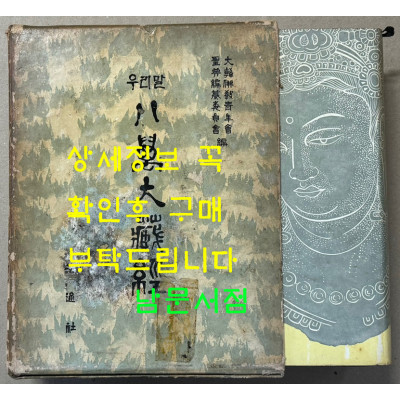 우리말
八萬大藏經
大韓佛教青年會
聖典編纂委員會 編
通社
상세정보 꼭
확인후 구매
부탁드립니다
남문서점